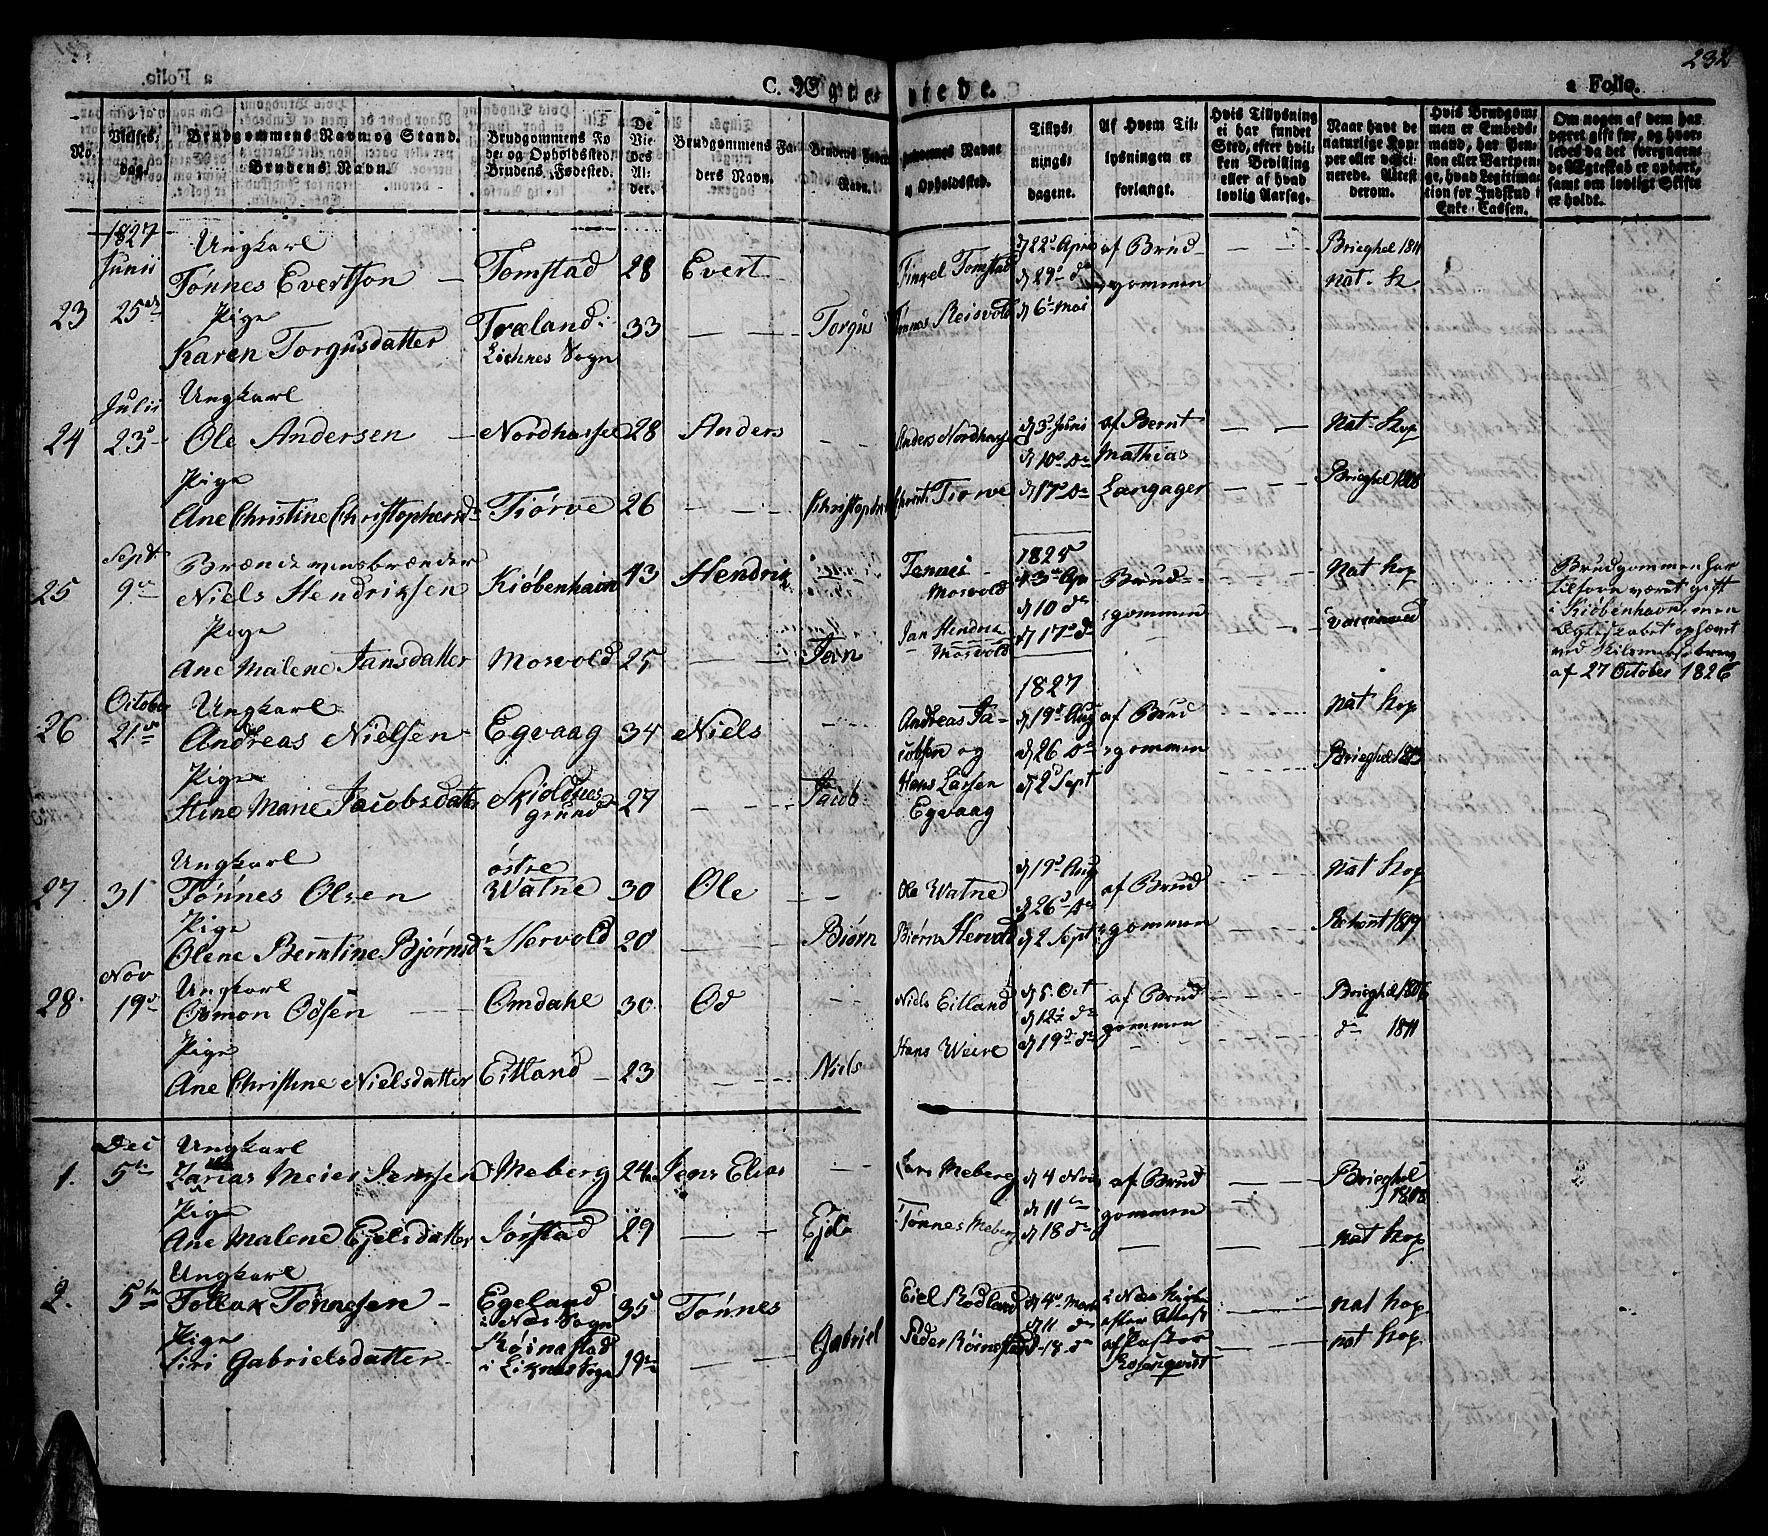 a Folio.
C. Ægte-
viede.
232
a Folio.
No.
Vielses-
dag.
Brudgommens Navn og Stand.
Brudens Navn.
Brudgommens Fø-
de- og Opholdssted.
Brudens Fødested.
De
Vie-
des
Al-
der.
Brudgommens Fa-
ders Navn.
Brudens Faders
Navn.
Forlovernes Navne
og Opholdssted.
Tillys-
nings-
dagene.
Af Hvem Til-
lysningen er
forlangt.
Hvis Tillysning
ei har fundet
Sted, efter hvil-
ken Bevilling
eller af hvad
lovlig Aarsag.
Naar havt de
naturlige Kop-
per eller vacci-
nerede. Attest
derom.
Hvis Brudgom-
men er Embeds-
mand, har Pen-
sion eller Vartpen-
ge, hvad Legitima-
tion for Indskud i
Enke-Cassen.
Om nogen af dem har
været gift før, og hvor-
ledes da det foregaaen-
de Ægteskab er ophørt,
samt om lovligt Skifte
er holdt.
23
1827
Junii
25de
Ungkarl
Tønnes Evertson
Pige
Karen Torgusdatter
Tomstad
Træland i
Liknes Sogn
28
33
Evert
Torgus
Tinkel Tomstad
Tønnes Reisvold
d 22de April
d 29de do
d 6te Mai
af Brud-
gommen
Brieghel 1811
nat. K
24
Julii
23de
Ungkarl
Ole Andersen
Pige
Ane Christine Christophersd
Nordhassel
Tiørve
28
26
Anders
Christopher
Anders Nordhassel
Christ. Tiørve
d 3de Juni
d 10de do
d 17de do
af Bernt
Mathias
Langager
nat. Kop
Brieghel 1808
25
Sept.
9de
Brændeviinsbrænder
Niels Hendriksen
Pige
Ane Malene Jansdatter
Kiøbenhavn
Mosvold
43
25
Hendrik
Jan
Tønnes
Mosvold
Jan Hendrik
Mosvold
1825
d 3de Ap
d 10 do
d 17de do
Brud-
gommen
nat Kop
vaccineered
Brudgommen har
tilforn været gift
i Kiøbenhavn, men
Ægteskabet ophævet
ved Skilsmissebrev
af 27 October 1826
26
October
21de
Ungkarl
Andreas Nielsen
Pige
Stine Marie Jacobsdatter
Egvaag
Skioldnes
grund
34
27
Niels
Jacob
Andreas Ja-
cobsen og
Hans Larsen
Egvaag
1827
d 19de Aug
d 26 do
d 2d Sept
af Brud
gommen
nat Kop
Brieghel
27
31
Ungkarl
Tønnes Olsen
Pige
Olene Berntine Bjørnsd
østre
Watne
Hervold
30
20
Ole
Biørn
Ole Watne
Biørn Hervold
d 19de Aug
d 26de do
d 2 Sept
af Brud
gommen
nat Kop
1819
28.
Nov
19de
Ungkarl
Osmon Odsen
Pige
Ane Christine Nielsdatter
Omdahl
Eitland
30
23
Od
Niels
Niels Eitland
Hans Weire
d 5. Oct
d 12te do
d 19de do
af Brud
gommen
Brieghel 1806
do 1811
1.
Dec
5te
Ungkarl
Zarias Meier Jensen
Pige
Ane Malene Ejelsdatter
Meberg
Jørstad
24
29
Jens Elias
Ejel
Lars Meberg
Tønnes Meberg
d 4 Nov
d 11te
d 18 do
af Brud
gommen
Brieghel
1818
nat Kop
2.
5te
Ungkarl
Tollak Tønnesen
Pige
Siri Gabrielsdatter
Egeland
i Næs Sogn
Røinestad
i Liknes Sogn
35
19
Tønnes
Gabriel
Eiel Rødland
Peder Røinestad
d 4de
d 11 do
18 do
i Næs Kirke
efter Attest
af Pastor
Rosenqvist
nat Kop
nat Kop